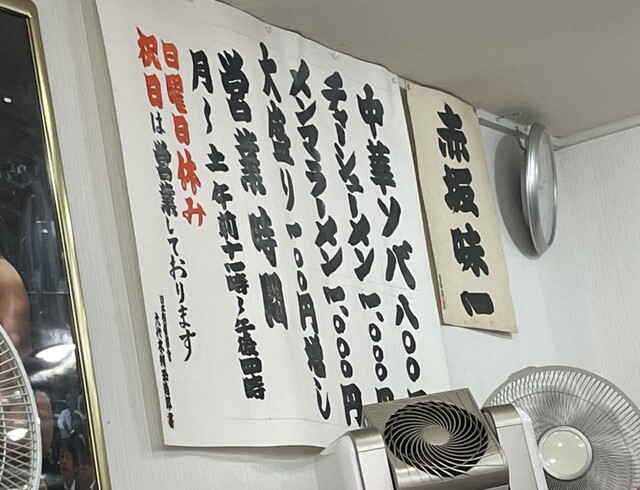 赤坂味一
中華ソバ 八〇〇円
チャーシューメン 一、〇〇〇円
メンマラーメン 一、〇〇〇円
大盛り 一〇〇円増し
営業時間
月〜土 午前十一時〜午後四時
日曜日休み
祝日は営業しております